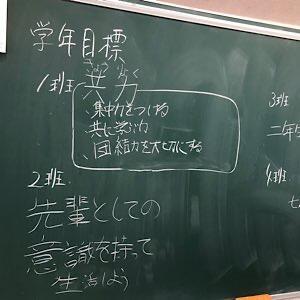 学年目標
1班 きょうりょく
共力
集中力をつける
共に学ぶ力
団結力を大切にする
2班
先輩としての
意識を持って
生活しよう
3班
二年生
4班